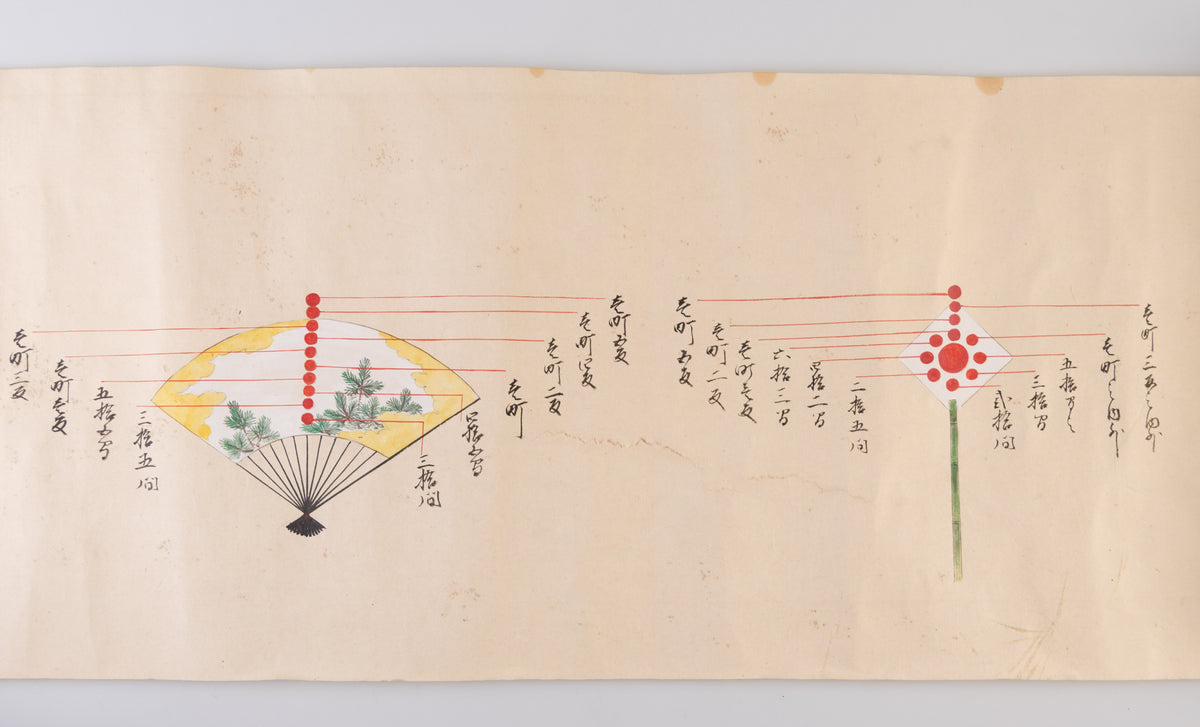 壱町三反之内外
壱町之内外
五拾
三拾間
弐拾間
二拾五間
四拾二間
六拾二間
壱町壱反
壱町二反
壱町五反
壱町五反
壱町四反
壱町二反
壱町
四拾五間
三拾間
三拾五間
五拾五間
壱町壱反
壱町二反